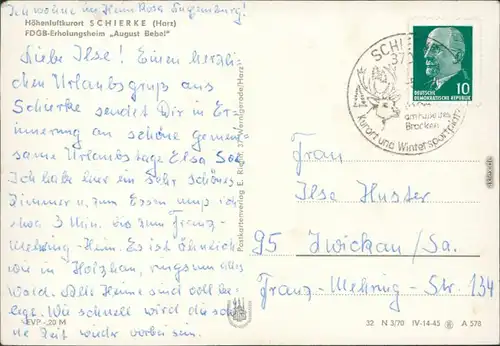 Ich wohne im Heim Rosa Luxemburg!
Höhenluftkurort SCHIERKE (Harz)
FDGB-Erholungsheim „August Bebel"
Liebe Ilse! Einen herzli-
chen Urlaubsgruß aus
Schierke sendet Dir in Er-
innerung an schöne gemein-
same Urlaubstage Elsa
Ich habe hier ein sehr schönes
Zimmer u. zum Essen muß ich
etwa 3 Min. bis zum Franz-
Mehring-Heim. Es ist ähnlich
wie in Holzhau, ringsum alles
Wald. Alle Heime sind voll be-
legt. Wie schnell wird die schö-
ne Zeit wieder vorbei sein.
EVP -,20 M
Postkartenverlag E. Wernigerode/Harz
SCHI
37
am Fuße des
Brocken
Kurort und Wintersportplatz
DEUTSCHE
DEMOKRATISCHE REPUBLIK
10
Frau
Ilse Huster
95 Zwickau/Sa.
Franz-Mehring-Str. 134
32 N 3/70 IV-14-45 A 578